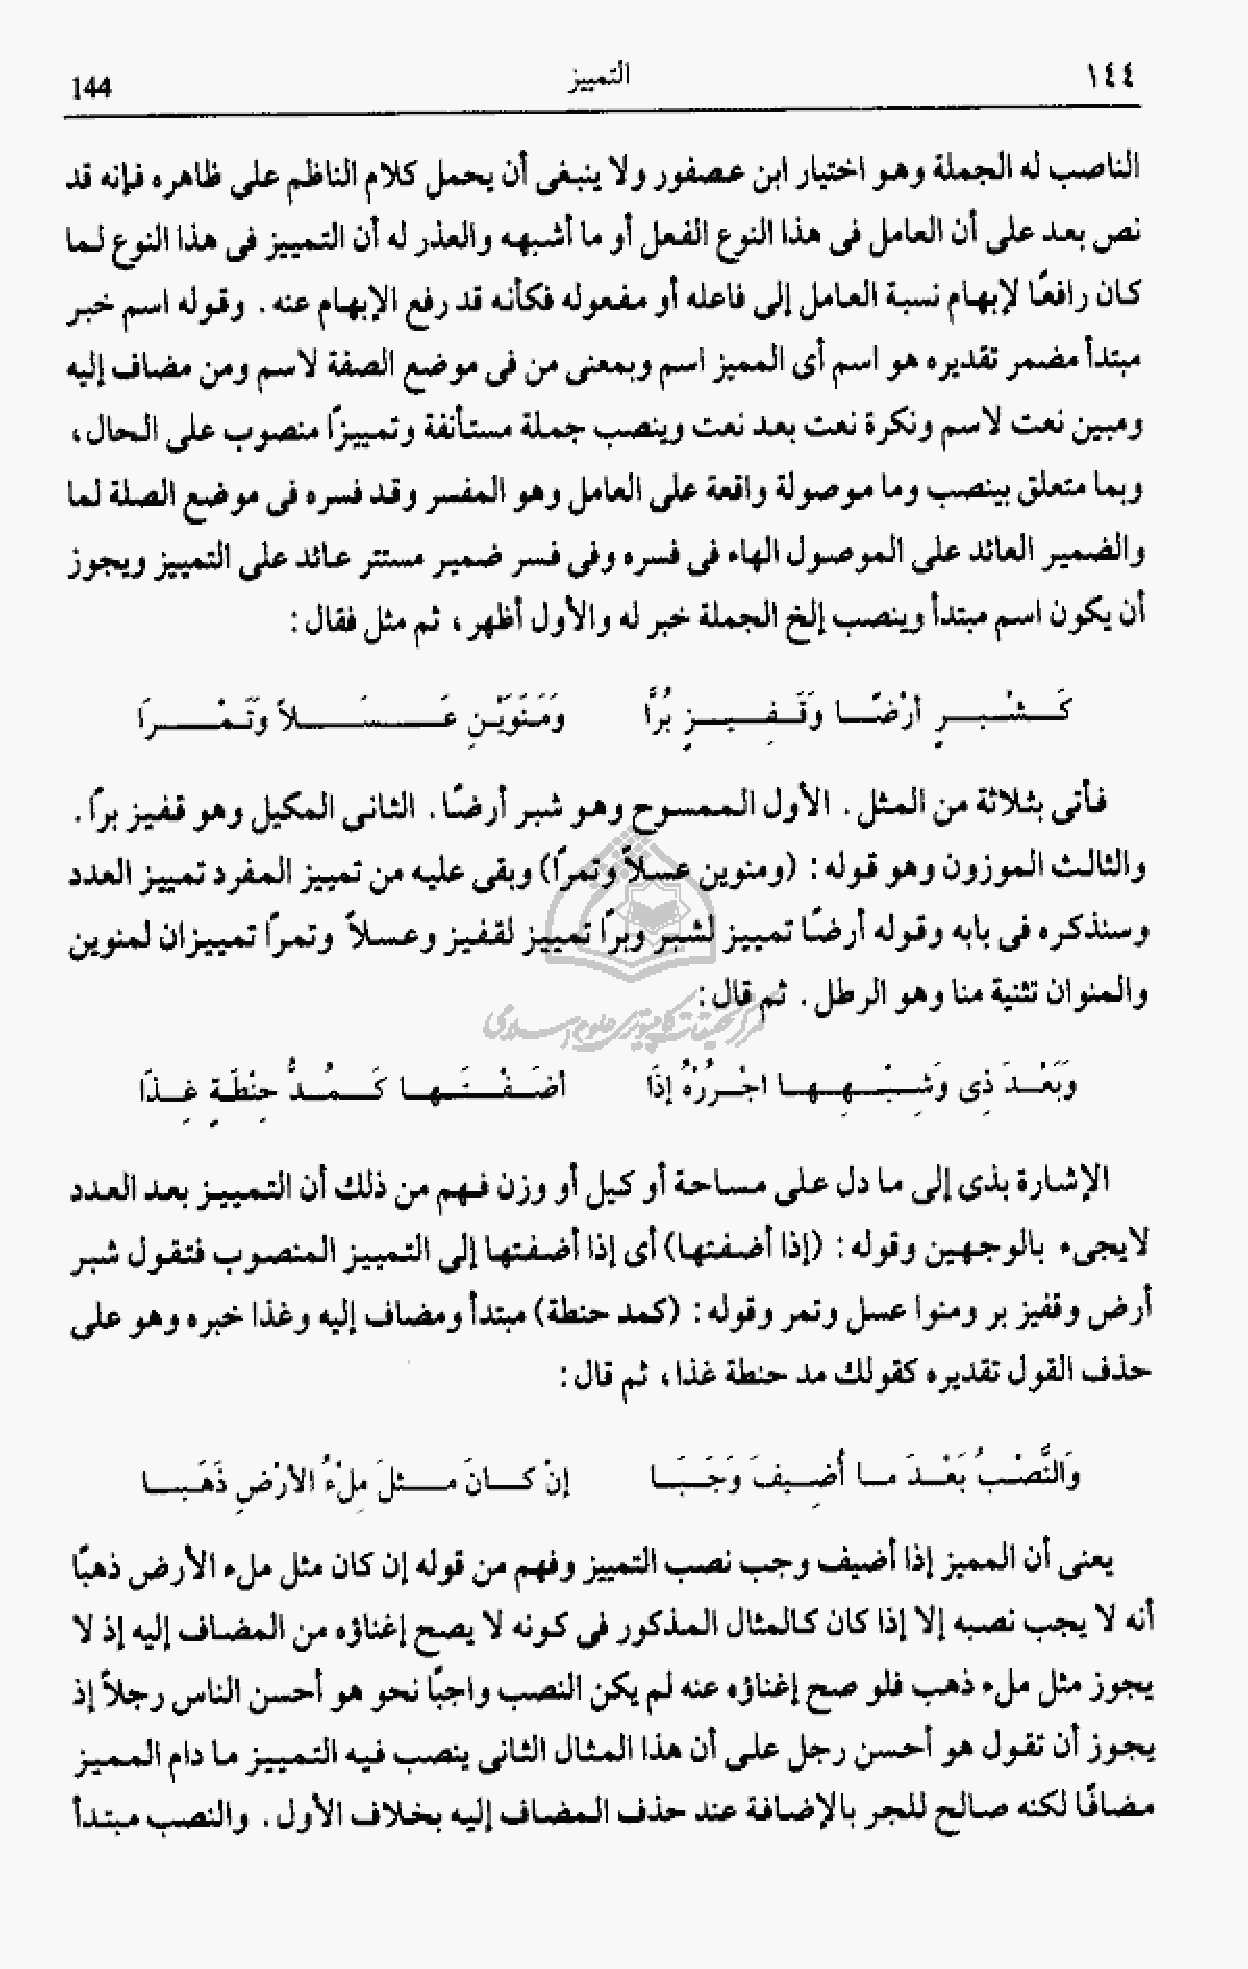 ١٤٤ التمييز 144
الناصب له الجملة وهو اختيار ابن عصفور ولا ينبغى أن يحمل كلام الناظم على ظاهره فإنه قد
نص بعد على أن العامل فى هذا النوع الفعل أو ما أشبهه والعذر له أن التمييز فى هذا النوع لما
كان رافعًا لإبهام نسبة العامل إلى فاعله أو مفعوله فكأنه قد رفع الإبهام عنه . وقوله اسم خبر
مبتدأ مضمر تقديره هو اسم أى المميز اسم وبمعنى من فى موضع الصفة لاسم ومن مضاف إليه
ومبين نعت لاسم ونكرة نعت بعد نعت وينصب جملة مستأنفة وتمييزاً منصوب على الحال ،
وبما متعلق بينصب وما موصولة واقعة على العامل وهو المفسر وقد فسره فى موضع الصلة لما
والضمير العائد على الموصول الهاء فى فسره وفى فسر ضمير مستتر عائد على التمييز ويجوز
أن يكون اسم مبتدأ وينصب إلخ الجملة خبر له والأول أظهر ، ثم مثل فقال :
كَـشِـبْـرٍ أرْضًـا وَقَـفِـيـزٍ بُرَّا وَمَنَوَيْـنِ عَـسَـلاً وَتَـمْـرَا
فأتى بثلاثة من المثل . الأول الممسوح وهو شبر أرضًا . الثانى المكيل وهو قفيز براً .
والثالث الموزون وهو قوله : (ومنوين عسلاً وتمراً) وبقى عليه من تمييز المفرد تمييز العدد
وسنذكره فى بابه وقوله أرضًا تمييز لشبر وبراً تمييز لقفيز وعسلاً وتمراً تمييزان لمنوين
والمنوان تثنية منا وهو الرطل . ثم قال :
مركز تحقيقات كامپيوترى علوم اسلامى
وَبَعْـدَ ذِى وَشِـبْـهِـهـا اجْـرُرْهُ إذَا أضَـفْـتَـهـا كَـمُـدُّ حِنْطَـةٍ غِـذَا
الإشارة بذى إلى ما دل على مساحة أو كيل أو وزن فهم من ذلك أن التمييز بعد العدد
لايجىء بالوجهين وقوله : (إذا أضفتها) أى إذا أضفتها إلى التمييز المنصوب فتقول شبر
أرض وقفيز بر ومنوا عسل وتمر وقوله : (كمد حنطة) مبتدأ ومضاف إليه وغذا خبره وهو على
حذف القول تقديره كقولك مد حنطة غذا ، ثم قال :
وَالنَّصْـبُ بَعْـدَ مـا أُضِيـفَ وَجَـبَـا إنْ كـانَ مثـلَ مِلْءُ الأرْضِ ذَهَـبـا
يعنى أن المميز إذا أضيف وجب نصب التمييز وفهم من قوله إن كان مثل ملء الأرض ذهبًا
أنه لا يجب نصبه إلا إذا كان كالمثال المذكور فى كونه لا يصح إغناؤه من المضاف إليه إذ لا
يجوز مثل ملء ذهب فلو صح إغناؤه عنه لم يكن النصب واجبًا نحو هو أحسن الناس رجلاً إذ
يجوز أن تقول هو أحسن رجل على أن هذا المثال الثانى ينصب فيه التمييز ما دام المميز
مضافًا لكنه صالح للجر بالإضافة عند حذف المضاف إليه بخلاف الأول . والنصب مبتدأ